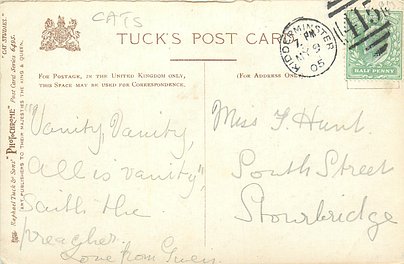 CATS
TUCK'S POST CARD
FOR POSTAGE, IN THE UNITED KINGDOM ONLY,
THIS SPACE MAY BE USED FOR CORRESPONDENCE.
(FOR ADDRESS ONLY.)
KIDDERMINSTER
7. PM
MY 9
05
115
HALF PENNY
"CAT STUDIES."
Raphael Tuck & Sons' "PHOTOCHROME" Post Card Series 6495.
ART PUBLISHERS TO THEIR MAJESTIES THE KING & QUEEN.
"Vanity, Vanity,
all is vanity",
saith the
preacher.
Love from
Miss T. Hunt
South Street
Stourbridge